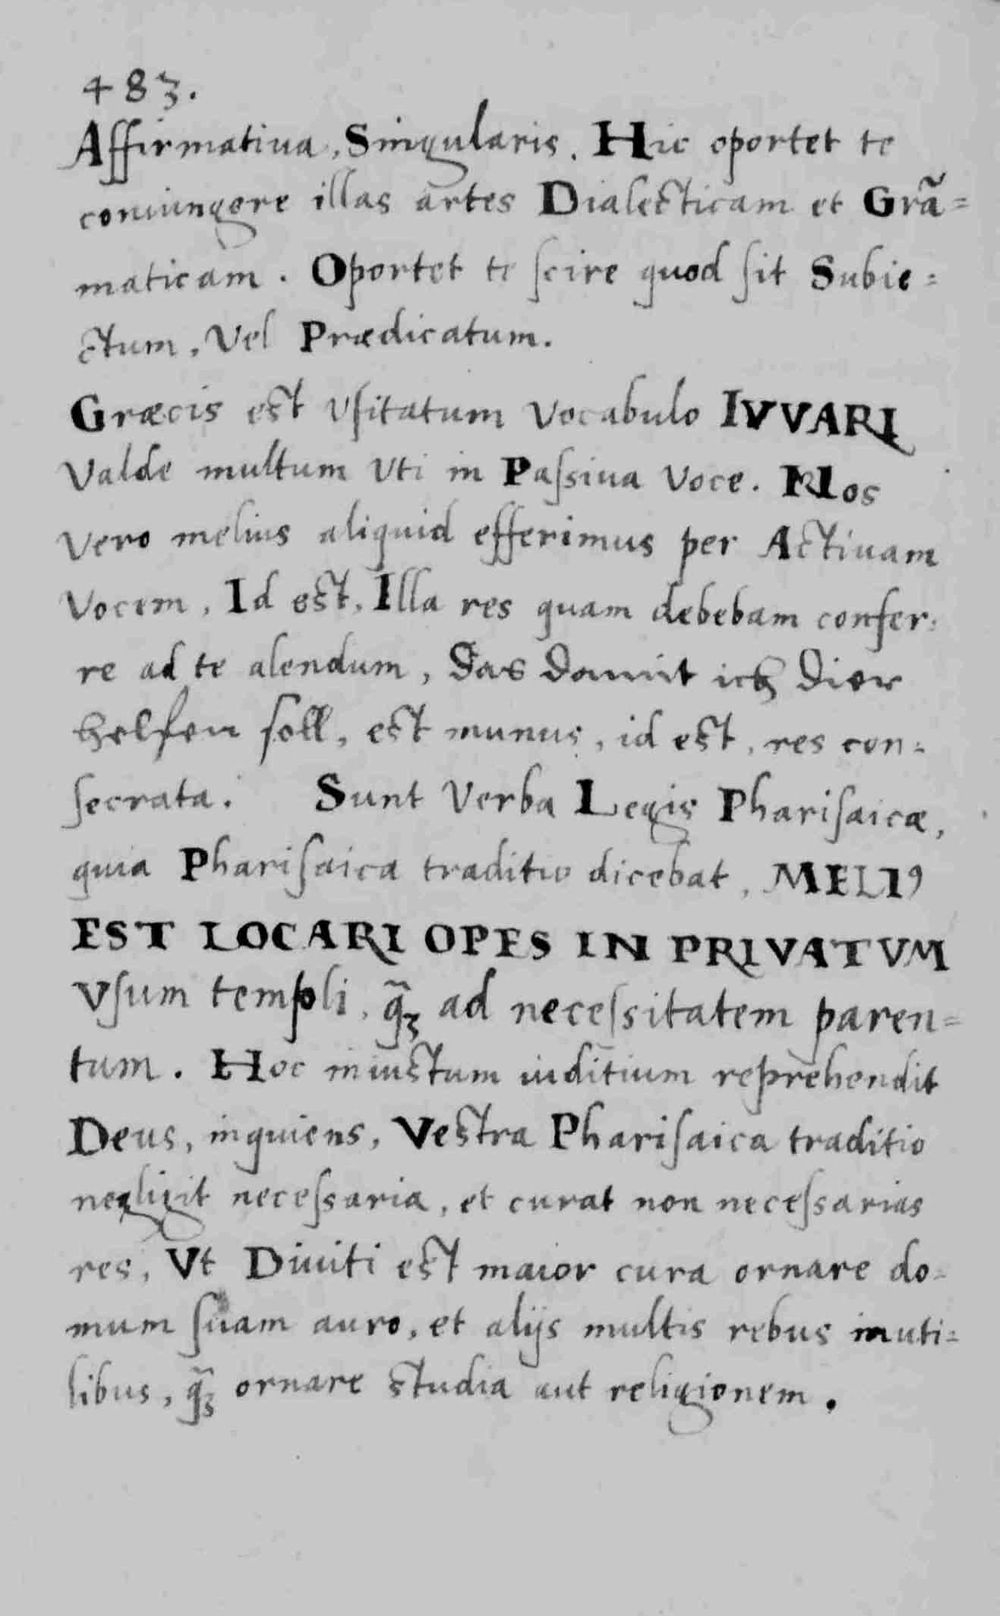 483.
Affirmatiua, Singularis. Hic oportet te
coniungere illas artes Dialecticam et Grã=
maticam. Oportet te scire quod sit Subie=
ctum, Vel Prædicatum.
Græcis est vsitatum vocabulo IVVARI
Valde multum Vti in Passiua Voce. Nos
Vero melius aliquid efferimus per Actiuam
Vocem, Id est, Illa res quam debebam confer=
re ad te alendum, Das damit ich dier
helfen soll, est munus, id est, res con=
secrata. Sunt Verba Legis Pharisaicæ,
quia Pharisaica traditio dicebat, MELIꝰ
EST LOCARI OPES IN PRIVATVM
Vsum templi, q̃ꝫ ad necessitatem paren=
tum. Hoc iniustum iuditium reprehendit
Deus, inquiens, Vestra Pharisaica traditio
negligit necessaria, et curat non necessarias
res, Vt Diuiti est maior cura ornare do=
mum suam auro, et alijs multis rebus inuti=
libus, q̃ꝫ ornare studia aut religionem.